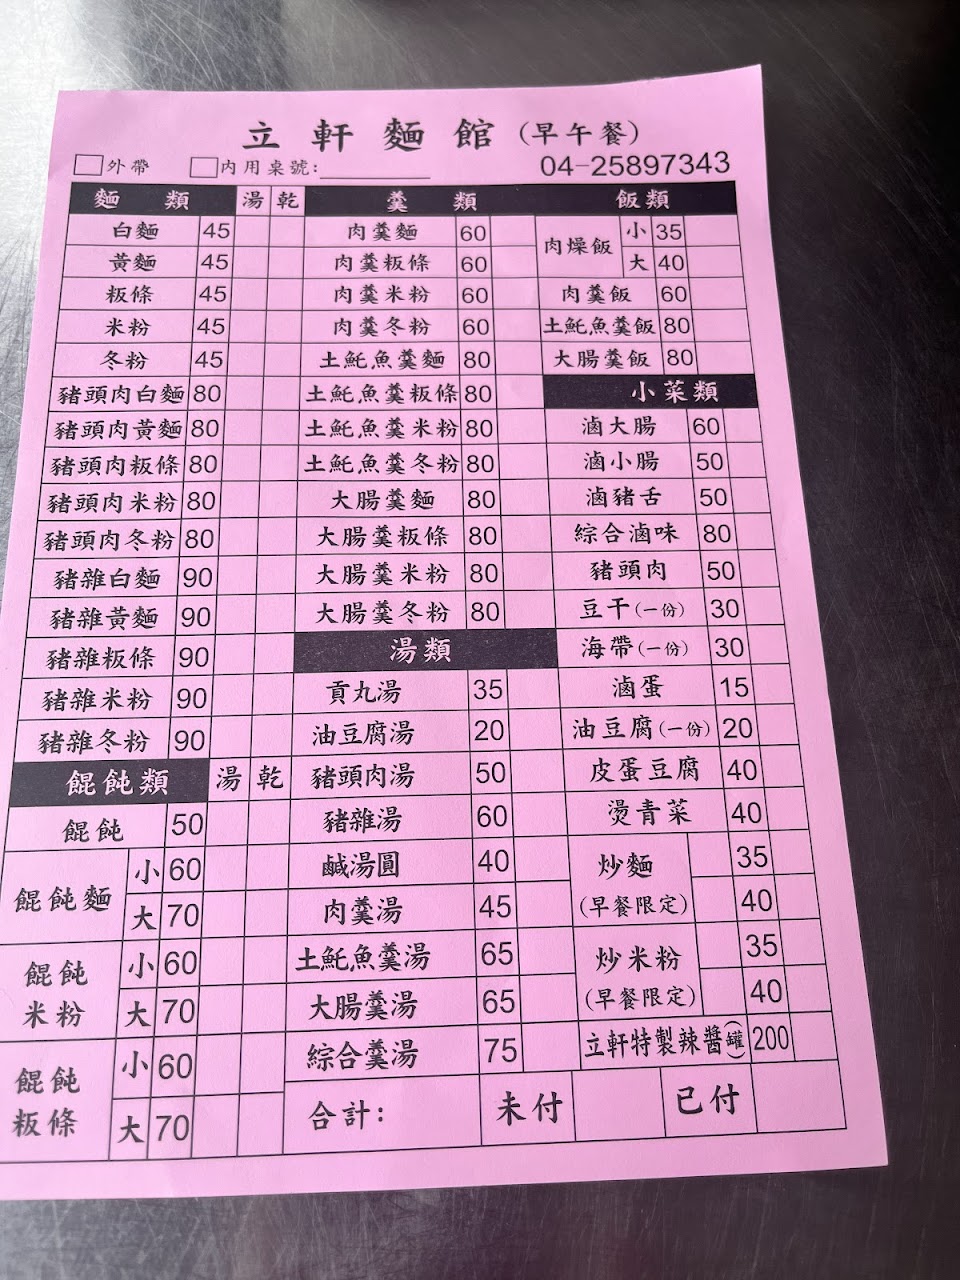 立軒麵館(早午餐)
外帶 內用桌號: 04-25897343
麵類 湯 乾
白麵 45
黃麵 45
粄條 45
米粉 45
冬粉 45
豬頭肉白麵 80
豬頭肉黃麵 80
豬頭肉粄條 80
豬頭肉米粉 80
豬頭肉冬粉 80
豬雜白麵 90
豬雜黃麵 90
豬雜粄條 90
豬雜米粉 90
豬雜冬粉 90
餛飩類 湯 乾
餛飩 50
餛飩麵 小 60
大 70
餛飩米粉 小 60
大 70
餛飩粄條 小 60
大 70
羹類
肉羹麵 60
肉羹粄條 60
肉羹米粉 60
肉羹冬粉 60
土魠魚羹麵 80
土魠魚羹粄條 80
土魠魚羹米粉 80
土魠魚羹冬粉 80
大腸羹麵 80
大腸羹粄條 80
大腸羹米粉 80
大腸羹冬粉 80
湯類
貢丸湯 35
油豆腐湯 20
豬頭肉湯 50
豬雜湯 60
鹹湯圓 40
肉羹湯 45
土魠魚羹湯 65
大腸羹湯 65
綜合羹湯 75
飯類
肉燥飯 小 35
大 40
肉羹飯 60
土魠魚羹飯 80
大腸羹飯 80
小菜類
滷大腸 60
滷小腸 50
滷豬舌 50
綜合滷味 80
豬頭肉 50
豆干(一份) 30
海帶(一份) 30
滷蛋 15
油豆腐(一份) 20
皮蛋豆腐 40
燙青菜 40
炒麵 35
(早餐限定) 40
炒米粉 35
(早餐限定) 40
立軒特製辣醬(罐) 200
合計: 未付 已付